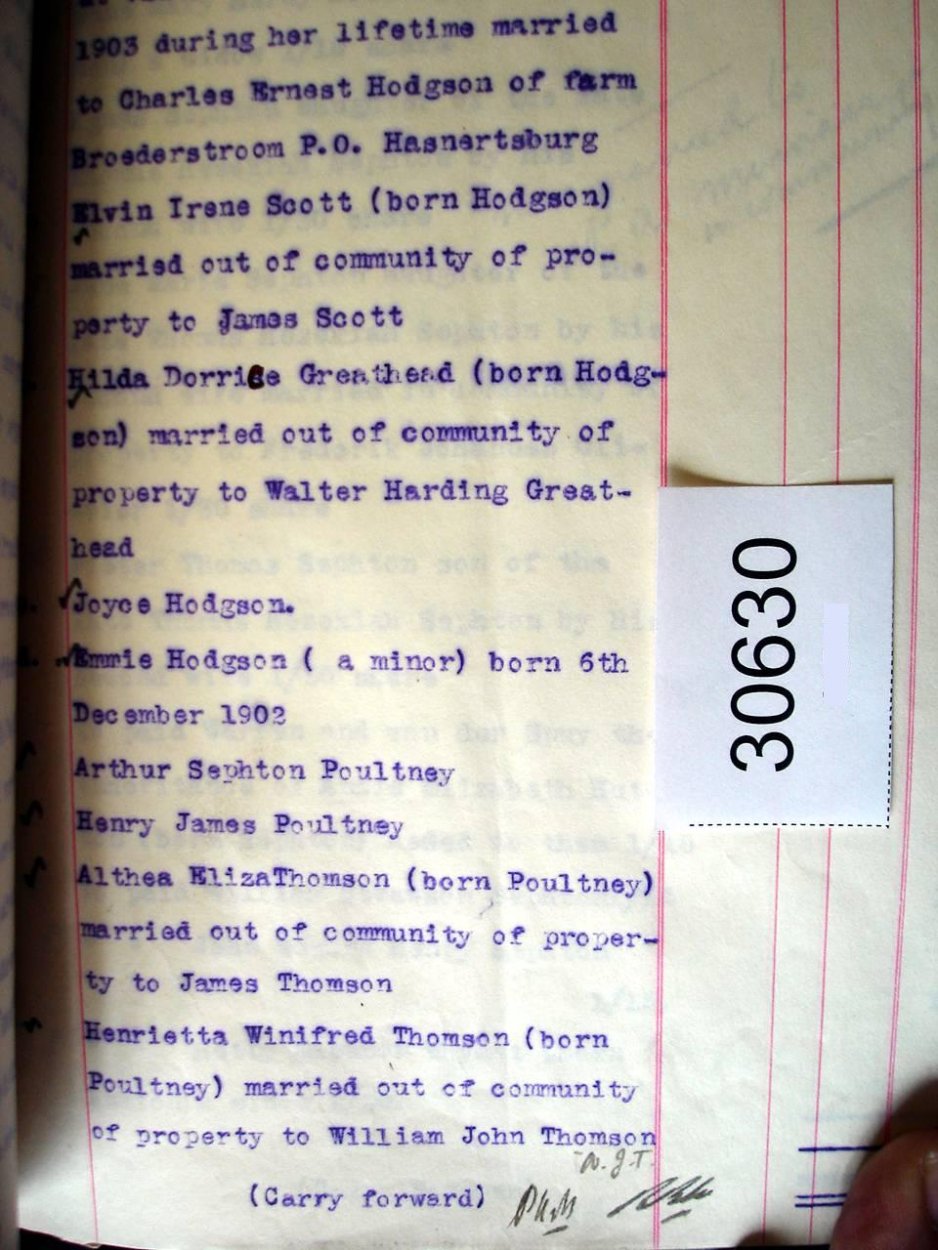 1903 during her lifetime married
to Charles Ernest Hodgson of farm
Broederstroom P.O. Hasnertsburg
Elvin Irene Scott (born Hodgson)
married out of community of pro-
perty to James Scott
Hilda Dorrice Greathead (born Hodg-
son) married out of community of
property to Walter Harding Great-
head
Joyce Hodgson.
Emmie Hodgson ( a minor) born 6th
December 1902
Arthur Sephton Poultney
Henry James Poultney
Althea ElizaThomson (born Poultney)
married out of community of proper-
ty to James Thomson
Henrietta Winifred Thomson (born
Poultney) married out of community
of property to William John Thomson
W.J.T.
(Carry forward)
30630